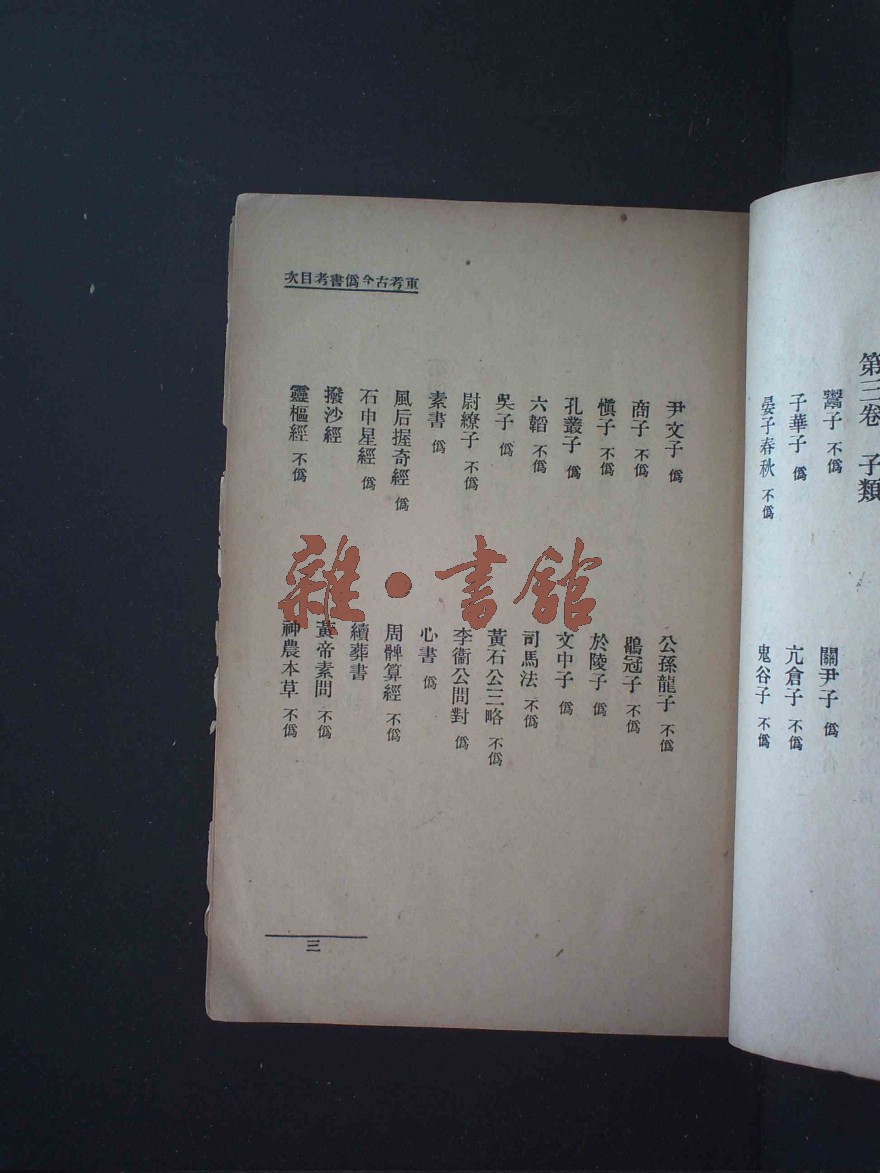 第三卷 子類
鬻子 不僞
關尹子 僞
子華子 僞
亢倉子 不僞
晏子春秋 不僞
鬼谷子 不僞
重考古今僞書考目次
尹文子 僞
公孫龍子 不僞
商子 不僞
鶡冠子 不僞
慎子 不僞
於陵子 僞
孔叢子 僞
文中子 僞
六韜 不僞
司馬法 不僞
吳子 僞
黃石公三略 不僞
尉繚子 不僞
李衞公問對 僞
素書 僞
心書 僞
風后握奇經 僞
周髀算經 不僞
石申星經 僞
續葬書
撥沙經
黃帝素問 不僞
靈樞經 不僞
神農本草 不僞
三
雜·書館